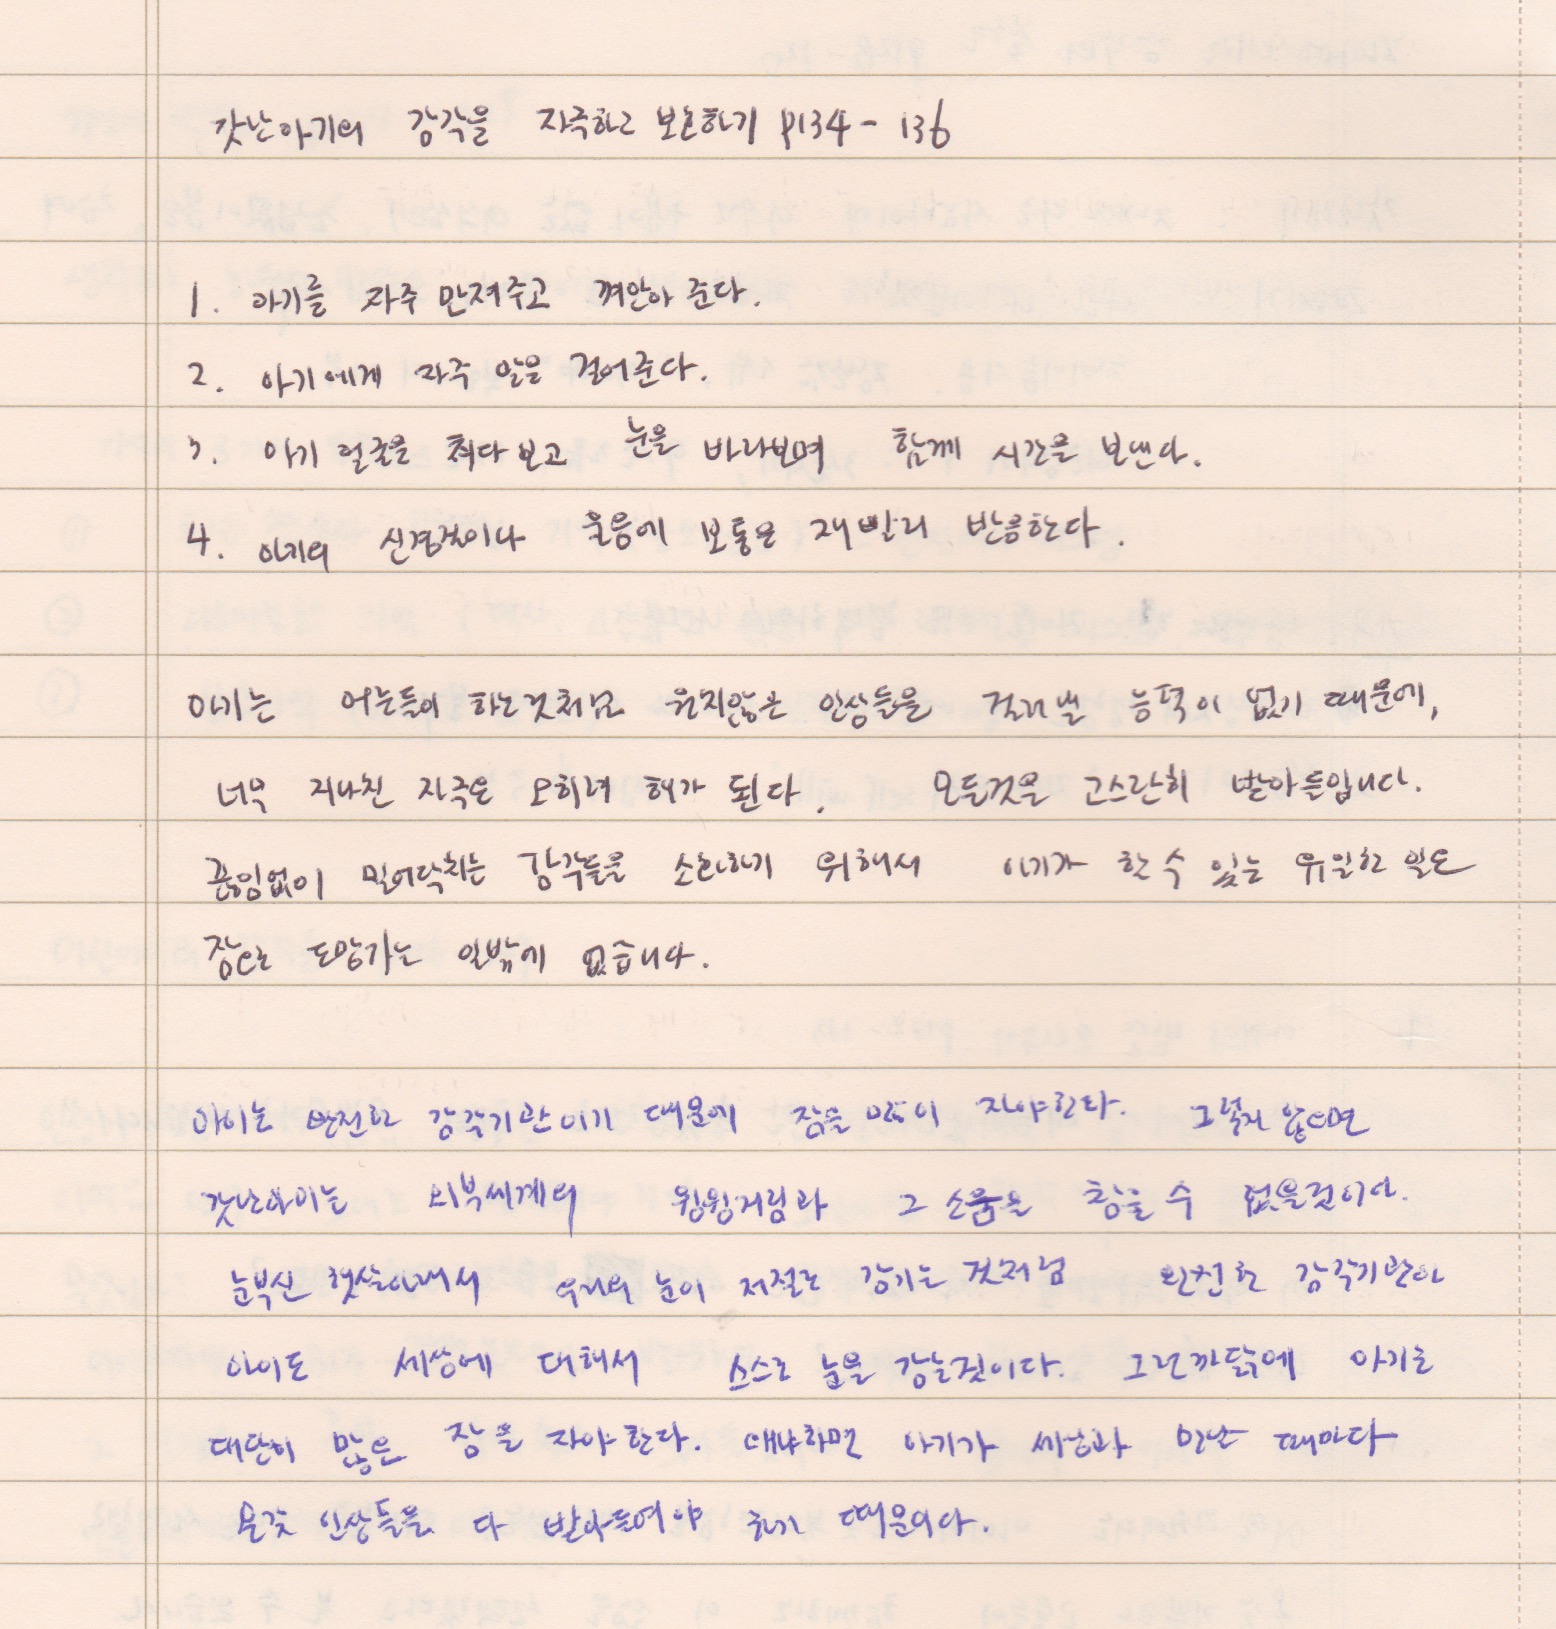 갓난아기의 감각을 자극하고 보호하기 P134 - 136
1. 아기를 자주 만져주고 껴안아 준다.
2. 아기에게 자주 말을 걸어준다.
3. 아기 얼굴을 쳐다보고 눈을 바라보며 함께 시간을 보낸다.
4. 아기의 신경질이나 울음에 보통은 재빨리 반응한다.
아기는 어른들이 하는것처럼 원치않은 인상들을 걸러낼 능력이 없기 때문에,
너무 지나친 자극은 오히려 해가 된다. 모든것을 고스란히 받아들입니다.
끊임없이 밀어닥치는 감각들을 소화하기 위해서 아기가 할 수 있는 유일한 일은
잠으로 도망가는 일밖에 없습니다.
아이는 완전한 감각기관이기 때문에 잠을 많이 자야한다. 그렇지 않으면
갓난아이는 외부세계의 윙윙거림과 그 소음을 참을 수 없을것이다.
눈부신 햇살아래서 우리의 눈이 저절로 감기는 것처럼 완전한 감각기관인
아이도 세상에 대해서 스스로 눈을 감는것이다. 그런까닭에 아기는
대단히 많은 잠을 자야 한다. 왜냐하면 아기가 세상과 만날 때마다
온갖 인상들을 다 받아들여야 하기 때문이다.